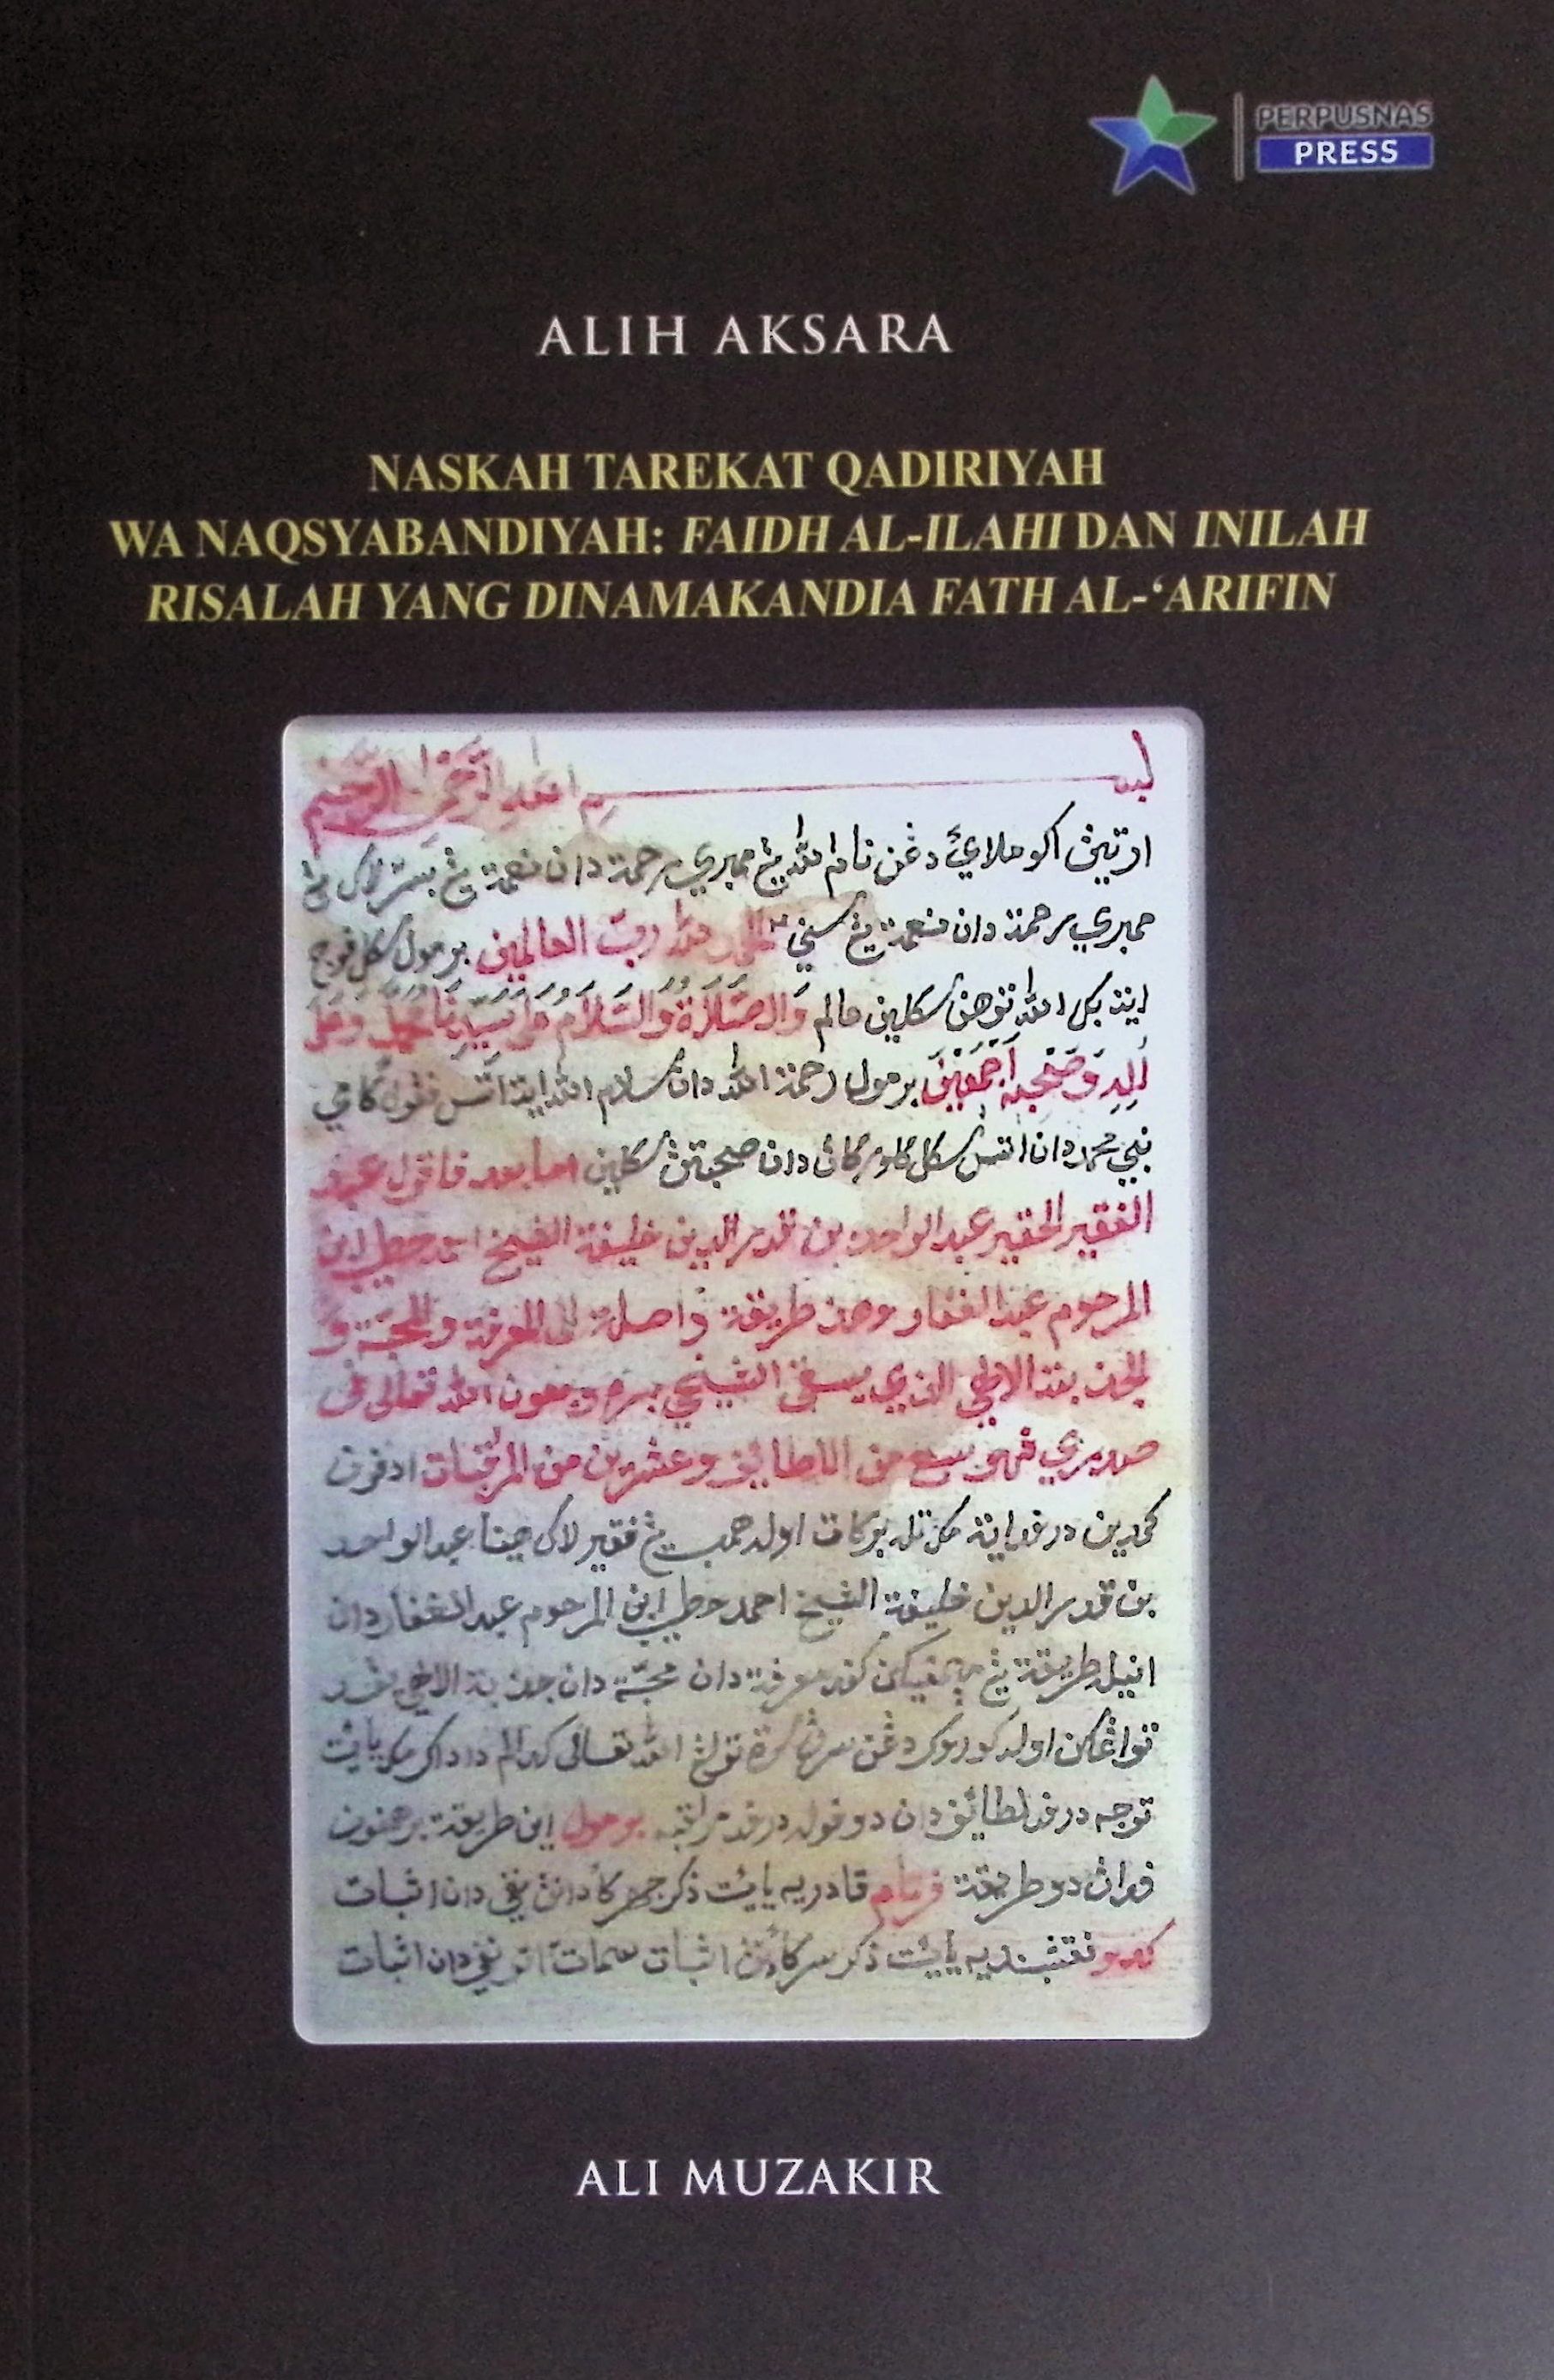 PERPUSNAS
PRESS
ALIH AKSARA
NASKAH TAREKAT QADIRIYAH
WA NAQSYABANDIYAH: FAIDH AL-ILAHI DAN INILAH
RISALAH YANG DINAMAKANDIA FATH AL-‘ARIFIN
بسم الله الرحمن الرحيم
ارتيڽ اكو ملائي دڠن نام الله يڠ ممبري رحمة دان نعمة يڠ
ممبري رحمة دان نعمة يڠ الحمد لله رب العالمين برمول سكل ڤوج
ايت بݢي الله توهن سكلين عالم وَالصَّلَاةُ وَالسَّلَامُ عَلَى سَيِّدِنَا مُحَمَّدٍ وَعَلَى
آلِهِ وَصَحْبِهِ أَجْمَعِيْنَ برمول رحمة الله دان سلام الله ايت اتس ڤڠهولو كامي
نبي محمد دان اتس سكل كلورݢاڽ دان صحبتڽ سكلين اما بعد فاقول عبد
الفقير الحقير عبد الواحد بن قدر الدين خليفة الشيخ احمد خطيب ابن
المرحوم عبد الغفار وهذه طريقة واصلة الى المعرفة والمحبة و
الجذبة الالهي الذي الشيخي وبعون الله تعالى في
صدري فهو سبع من اللطائف وعشرين من المراقبات ادڤون
كمدين درڤد ايت مك تله بركات اوله همب يڠ فقير لاݢي هينا عبد الواحد
بن قدر الدين خليفة الشيخ احمد خطيب ابن المرحوم عبد الغفار دان
اينيله طريقة يڠ كڤد معرفة دان محبة دان جذبة الالهي يڠ
اوله ݢورو كو دڠن تولڠ الله تعالى كدالم دادا كو يائت
توجه درڤد لطائف دان دوڤوله درڤد مراقبة برمول اين طريقة برهمڤون
دو طريقة ڤرتام قادريه يائت ذكر جهر نفي دان اثبات
كدو نقشبنديه يائت ذكر سر اثبات اتو نفي دان اثبات
ALI MUZAKIR